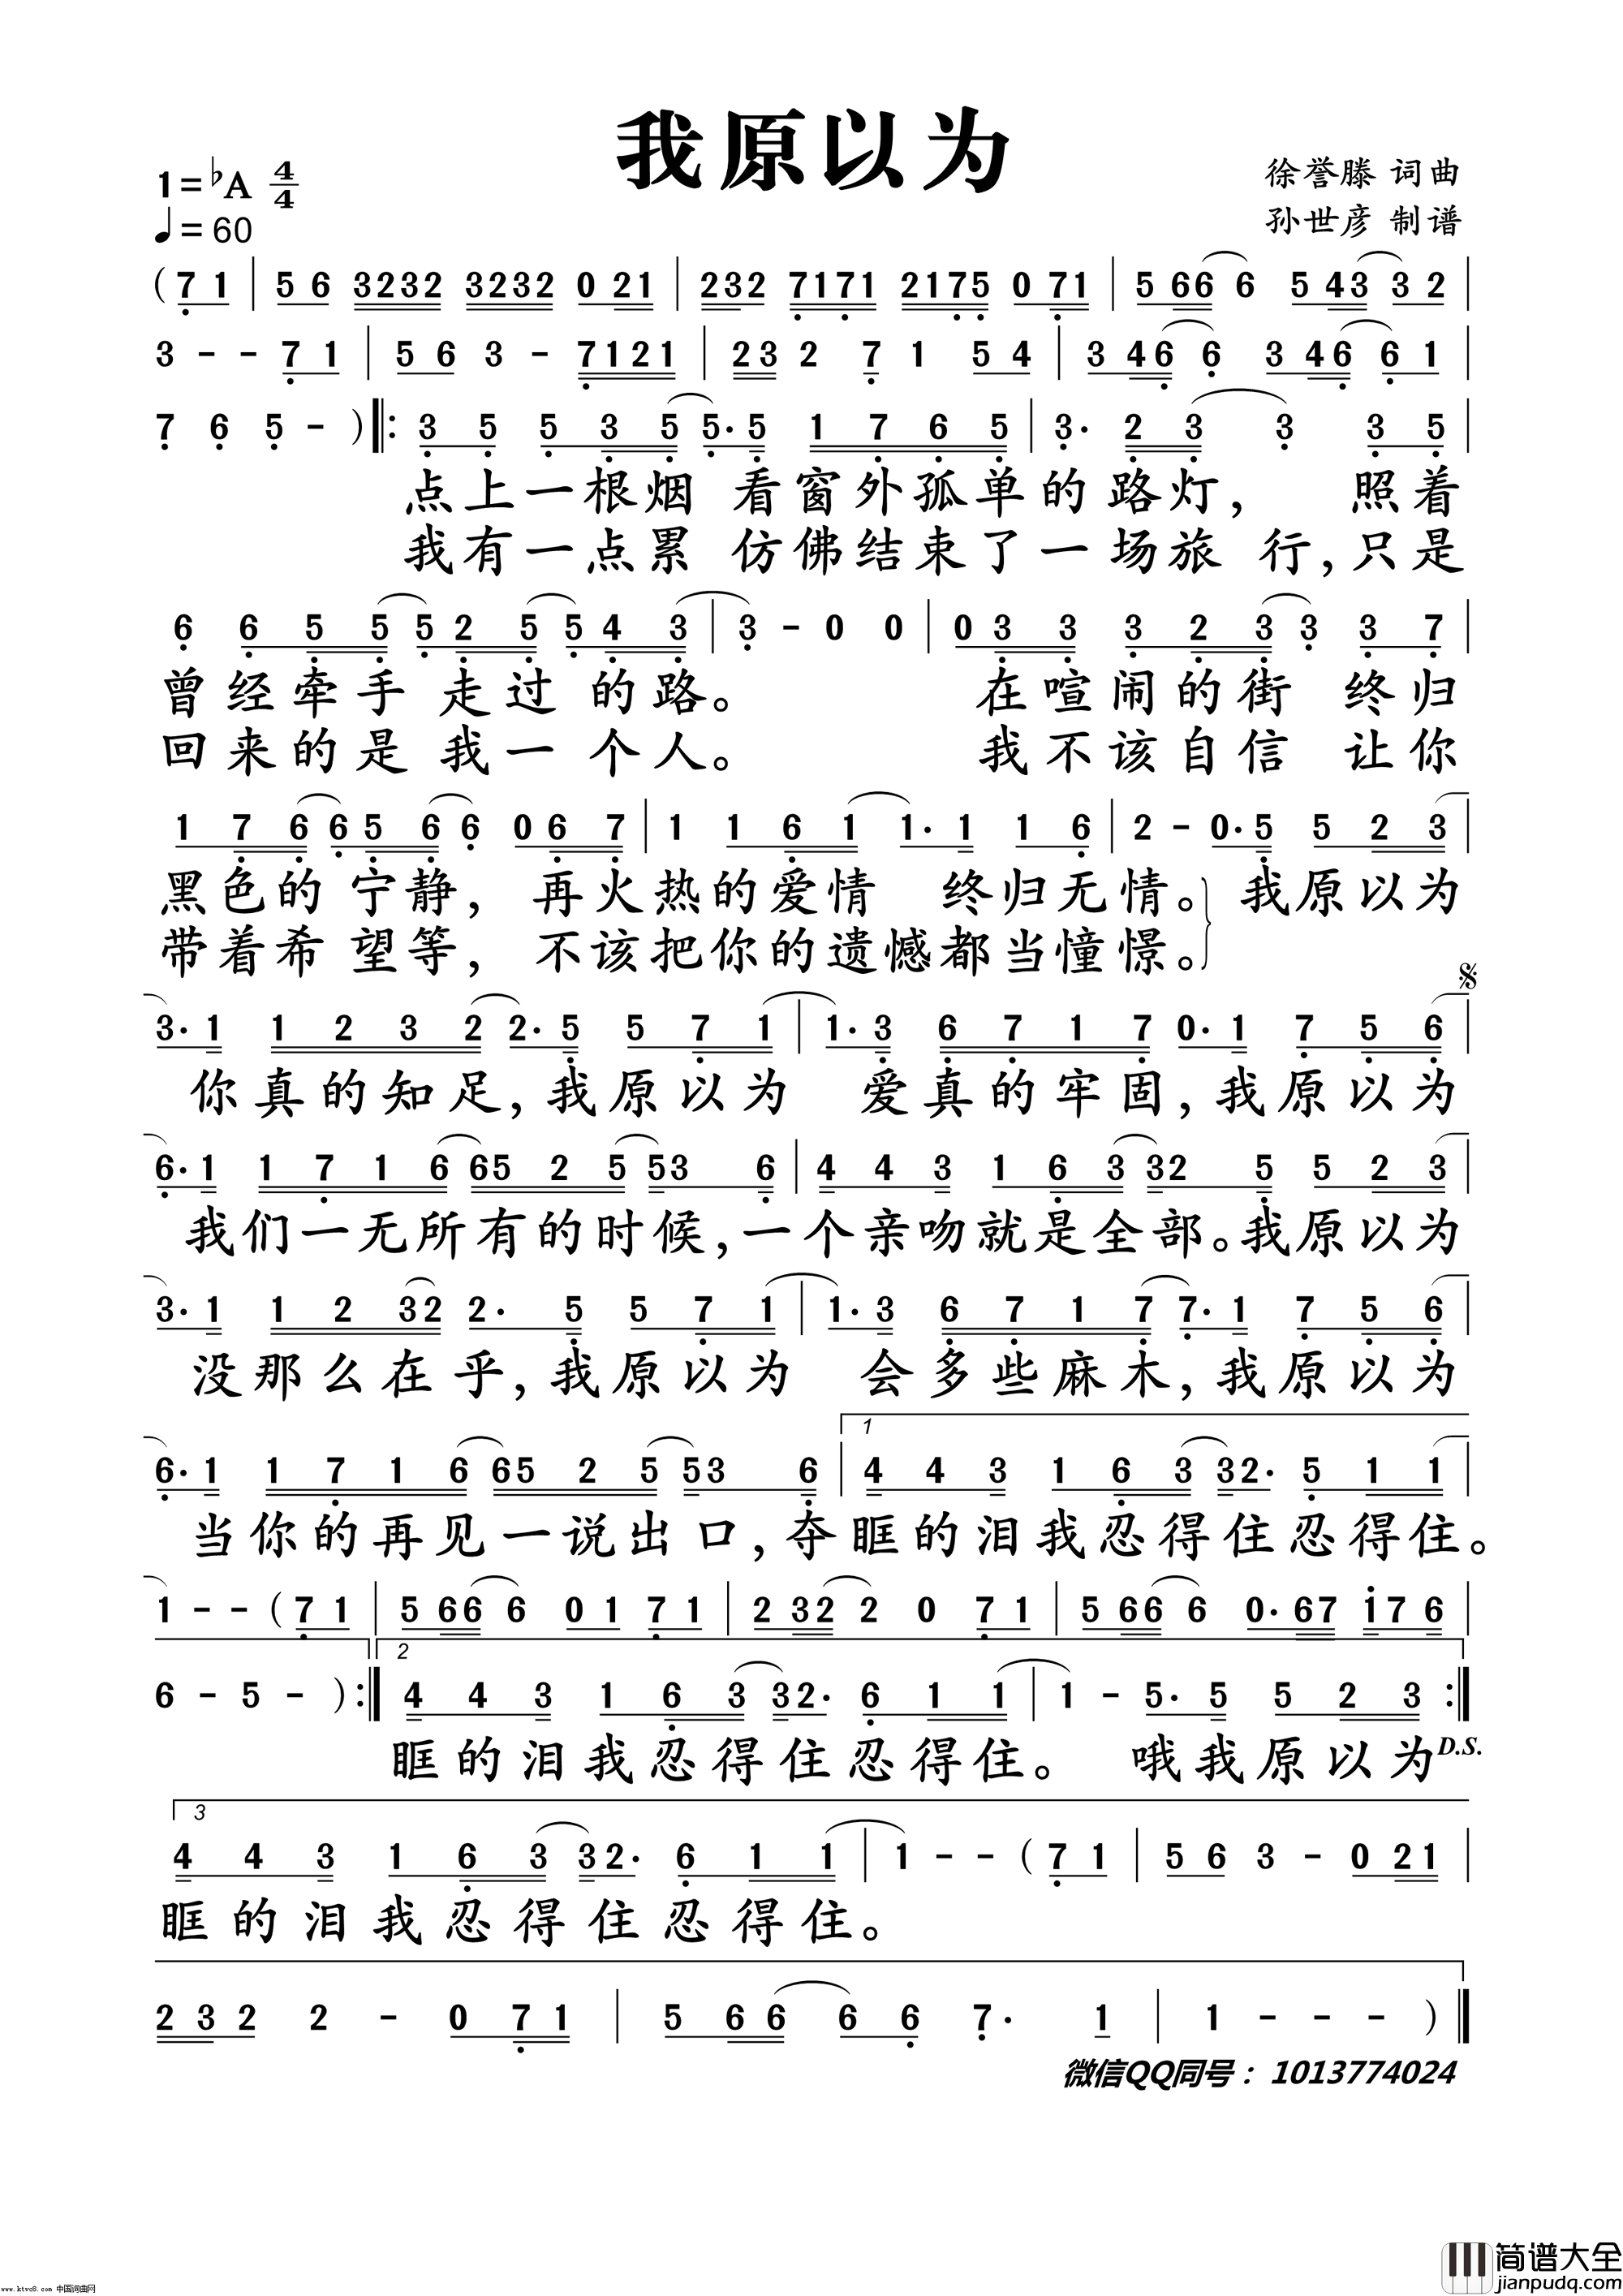 我原以为
1=♭A 4/4
♩=60
徐誉滕 词曲
孙世彦 制谱
( 7 1 | 5 6 3232 3232 0 21 | 232 7171 2175 0 71 | 5 66 6 5 43 3 2 |
3 - - 7 1 | 5 6 3 - 7121 | 23 2 7 1 5 4 | 3 46 6 3 46 6 1 |
7 6 5 - ) ‖: 3 5 5 3 5 5· 5 1 7 6 5 | 3· 2 3 3 3 5 |
点上一根烟 看窗外孤单的路灯， 照着
我有一点累 仿佛结束了一场旅 行，只是
6 6 5 5 5 2 5 5 4 3 | 3 - 0 0 | 0 3 3 3 2 3 3 3 7 |
曾经牵手 走过 的路。 在喧闹的街 终归
回来的是 我一 个人。 我不该自信 让你
1 7 6 6 5 6 6 0 6 7 | 1 1 6 1 1· 1 1 6 | 2 - 0· 5 5 2 3 |
黑色的 宁静， 再火热的爱情 终归无情。 我原以为
带着希 望等， 不该把你的遗憾都当憧憬。
3· 1 1 2 3 2 2· 5 5 7 1 | 1· 3 6 7 1 7 0· 1 7 5 6 |
你真的知足，我原以为 爱真的牢固，我原以为
6· 1 1 7 1 6 65 2 5 53 6 | 4 4 3 1 6 3 32 5 5 2 3 |
我们一无所有的时候，一个亲吻就是全部。我原以为
3· 1 1 2 32 2· 5 5 7 1 | 1· 3 6 7 1 7 7· 1 7 5 6 |
没那么在乎，我原以为 会多些麻木，我原以为
1
6· 1 1 7 1 6 65 2 5 53 6 | 4 4 3 1 6 3 32· 5 1 1 |
当你的再见一说出口，夺眶的泪我忍得住忍得住。
1 - - ( 7 1 | 5 66 6 0 1 7 1 | 2 32 2 0 7 1 | 5 66 6 0· 67 17 6 |
2
6 - 5 - ) :‖ 4 4 3 1 6 3 32· 6 1 1 | 1 - 5· 5 5 2 3 :‖
眶的泪我忍得住忍得住。 哦我原以为 D.S.
3
4 4 3 1 6 3 32· 6 1 1 | 1 - - ( 7 1 | 5 6 3 - 0 21 |
眶的泪我忍得住忍得住。
2 3 2 2 - 0 7 1 | 5 6 6 6 6 7· 1 | 1 - - - ) ‖
微信QQ同号：1013774024
简谱大全
jianpudq.com
www.ktvc8.com 中国词曲网